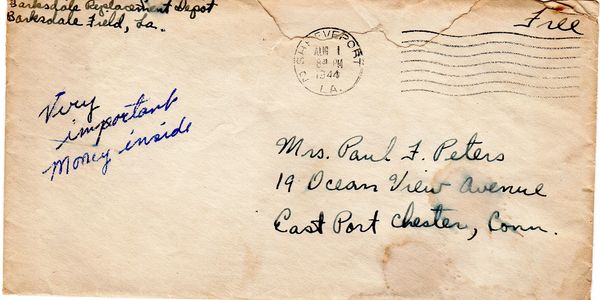 Barksdale Replacement Depot
Barksdale Field, La.
Free
SHREVEPORT
AUG 1
8 PM
1944
LA.
Very
important
Money inside
Mrs. Paul F. Peters
19 Ocean View Avenue
East Port Chester, Conn.